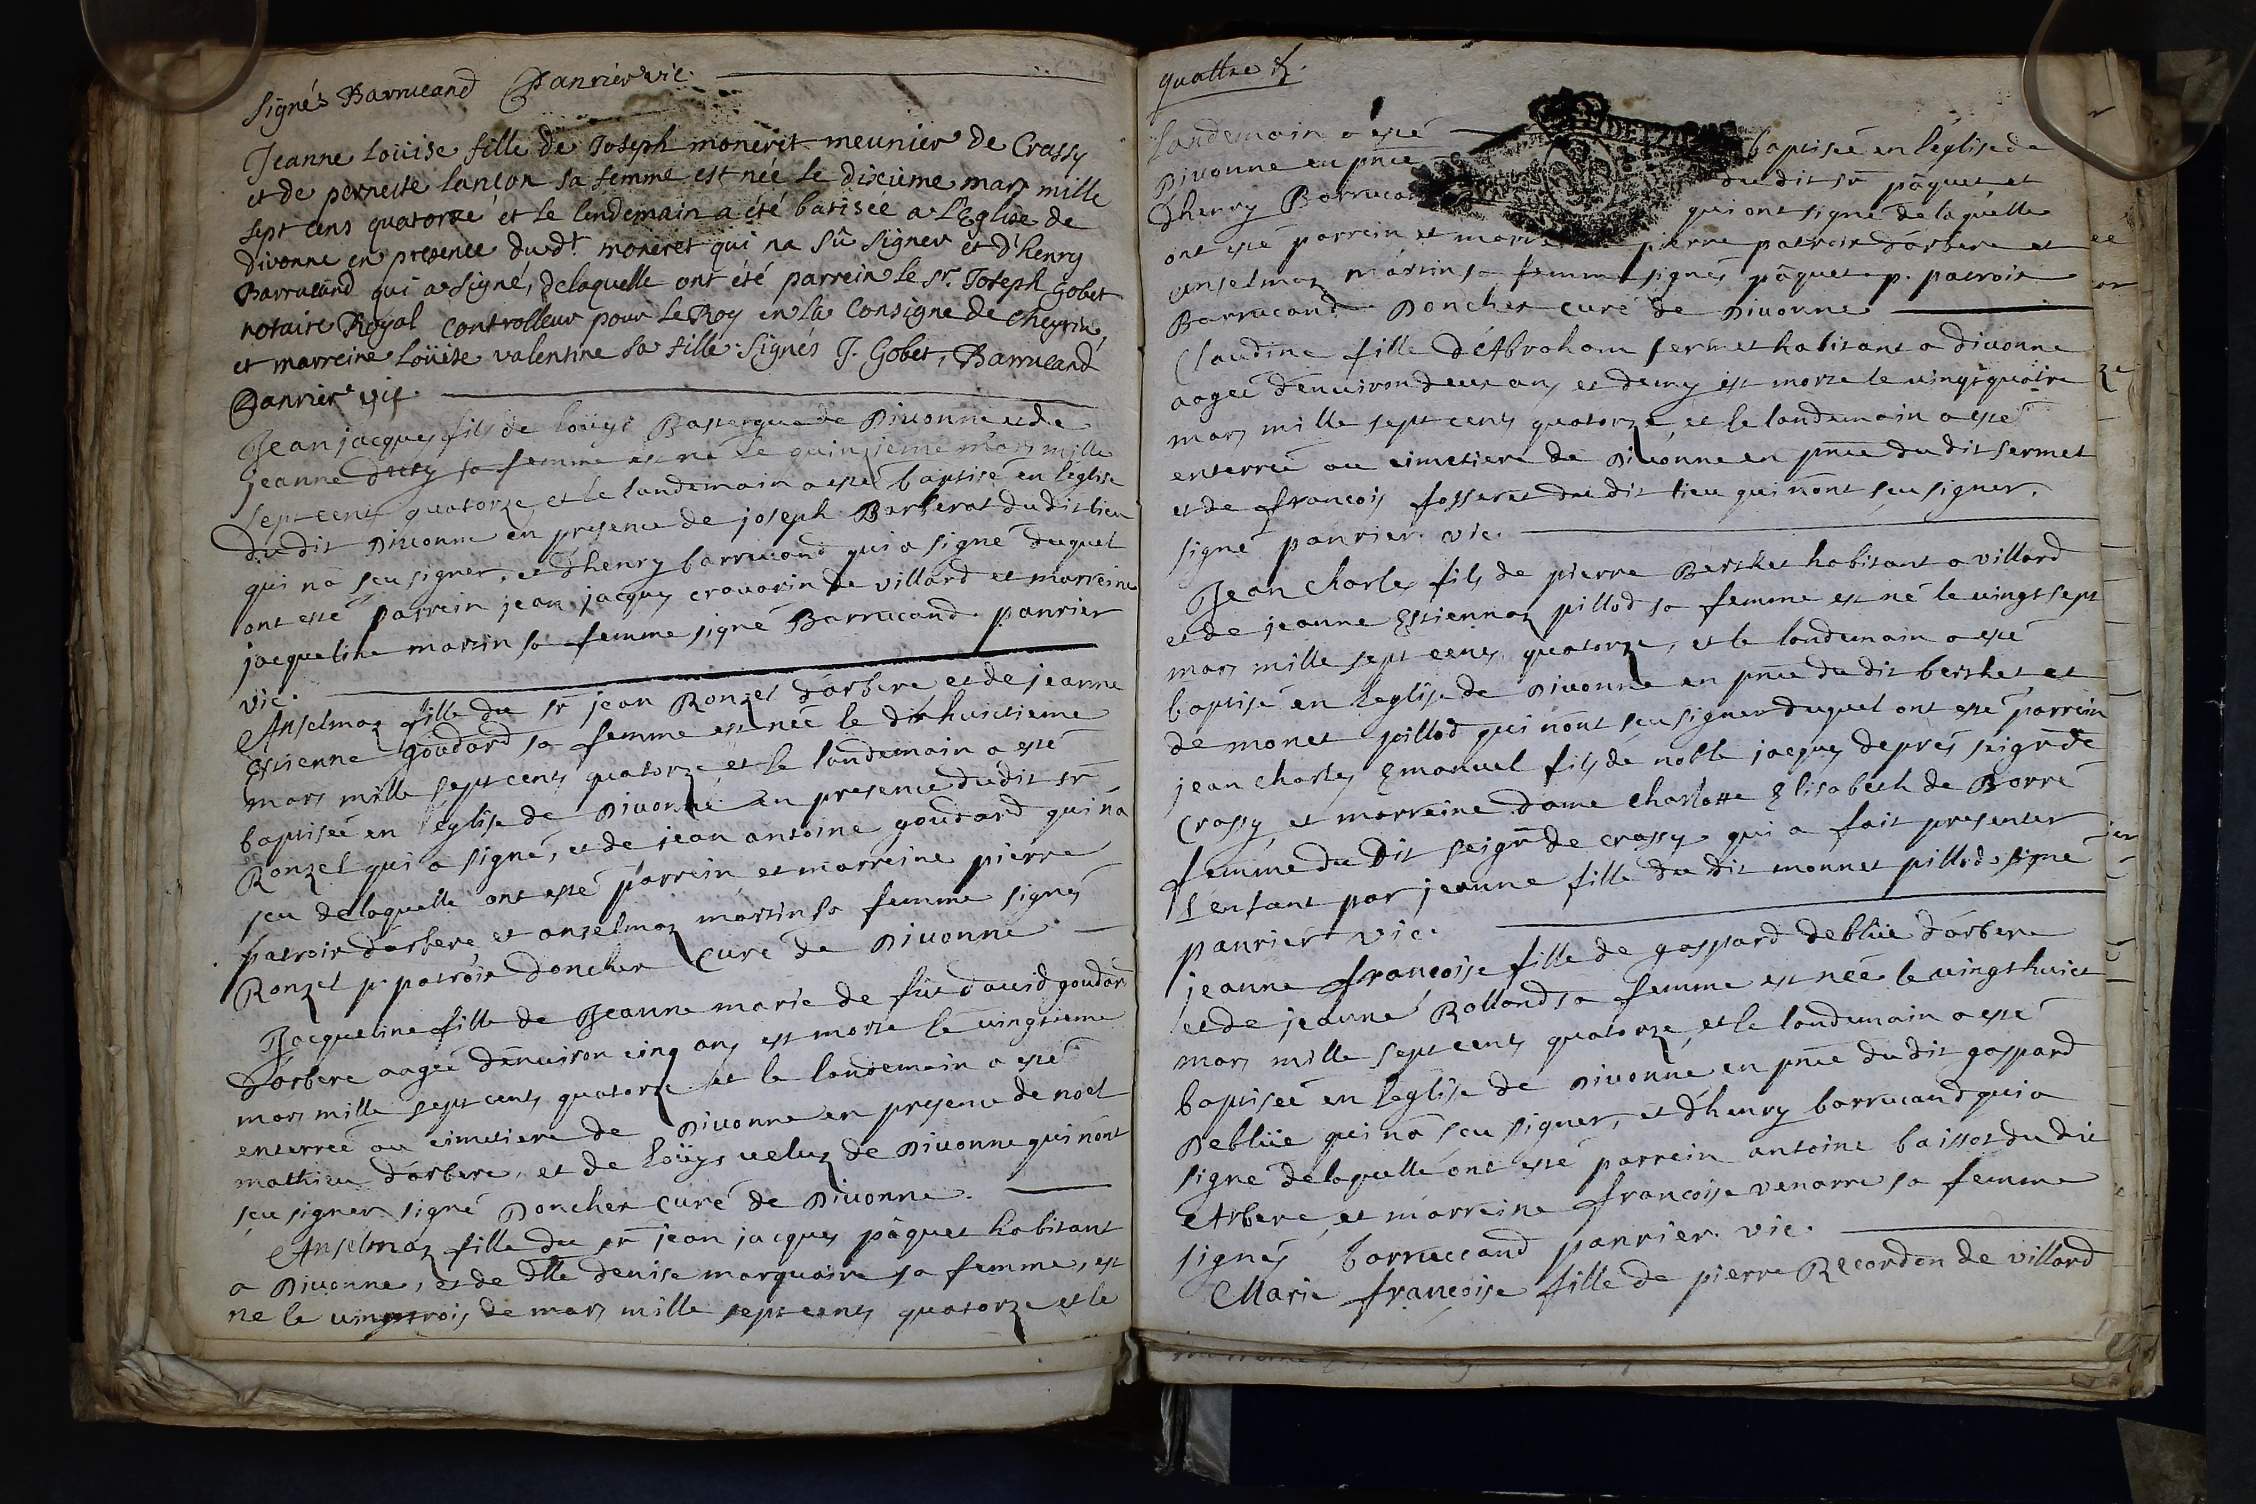 signés Barrucand Panrier vic.
Jeanne Loüise fille de Joseph moneret meunier de Crassy
et de pernette lançon sa femme est née le dixieme mars mille
sept cens quatorze et le lendemain a été batisée a L'Eglise de
divonne en presence dudt. moneret qui na sû signer et d'henry
Barrucand qui a signé, de laquelle ont été parrein le sr. Joseph Gobet
notaire Royal Controlleur pour le Roy en la Consigne de cheyrin,
et marreine Loüise valentine sa fille. signés J. Gobet, Barrucand
Panrier vic.
Jean jacques fils de loüys de Divonne et de
jeanne sa femme est né le quinzieme mars mille
sept cents quatorze et le landemain a esté baptisé en leglise
du dit Divonne en presence de joseph Barberat du dit lieu
qui na sçu signer, et d'henry barrucand qui a signé duquel
ont esté parrein jean jacques cravarin de villard et marreine
jacqueline martin sa femme signé Barrucand. panrier
vic.
Anselmaz fille du sr jean Ronzel d'arbere et de jeanne
Estienne goudard sa femme est née le dixhuictieme
mars mille sept cents quatorze et le landemain a esté
baptiseé en l'eglise de Divonne en presence du dit sr
Ronzel qui a signé, et de jean antoine goudard qui na
sçu de laquelle ont esté parrein et marreine pierre
patroix d'arbere et anselmaz martin sa femme signés
Ronzel p. patroix Doncher Curé de Divonne.
Jacqueline fille de Jeanne marie de füt david goudard
d'arbere aageé d'environ cinq ans est morte le vingtieme
mars mille sept cents quatorze et le landemain a esté
enterreé au cimetiere de Divonne en presence de noel
mathieu d'arbere, et de loüys veluz de Divonne qui n'ont
sçu signer signé Doncher curé de Divonne.
Anselmaz fille du sr jean jacques pâquet habitant
a Divonne, et de dlle denise marquaire sa femme, est
ne le vingt trois de mars mille sept cents quatorze et le
quattre
landemain a esté baptiseé en l'eglise de
Divonne en pnce du dit sr pâquet, et
d'henry Barrucand qui ont signé de laquelle
ont esté parrein et marreine pierre patroix d'arbere et
anselmaz martin sa femme signés pâquet p. patroix
Barrucand Doncher curé de Divonne
Claudine fille d'Abraham fermet habitant a divonne
aageé d'environ deux ans et demy est morte le vingt quatre
mars mille sept cents quatorze, et le landemain a esté
enterreé au cimetiere de Divonne en pnce du dit fermet
et de francois fosseret du dit lieu qui n'ont sçu signer.
signé panrier. vic.
Jean Charles fils de pierre Berthet habitant a villard
et de jeanne Estiennaz pillod sa femme est né le vingt sept
mars mille sept cents quatorze, et le landemain a esté
baptisé en leglise de Divonne en pnce du dit berthet et
de monet pillod qui n'ont sçu signer duquel ont esté parrein
jean charles Emanuel fils de noble jacques deprés seigr de
Crassy et marreine dame charlotte Elisabeth de Borré
femme du dit seigr de crassy qui a fait presenter
l'enfant par jeanne fille du dit monnet pillod signé
panrier vic.
jeanne françoise fille de gaspard deblüe d'arbere
et de jeanne Rolland sa femme est neé le vingt huict
mars mille sept cents quatorze, et le landemain a esté
baptiseé en leglise de Divonne en pnce du dit gaspard
Deblüe qui na sçu signer, et d'henry barrucand qui a
signé de laquelle ont esté parrein antoine baissot du dit
Arbere, et marreine francoise venarre sa femme
signés barruccand panrier. vic.
Marie françoise fille de pierre Recordon de villard